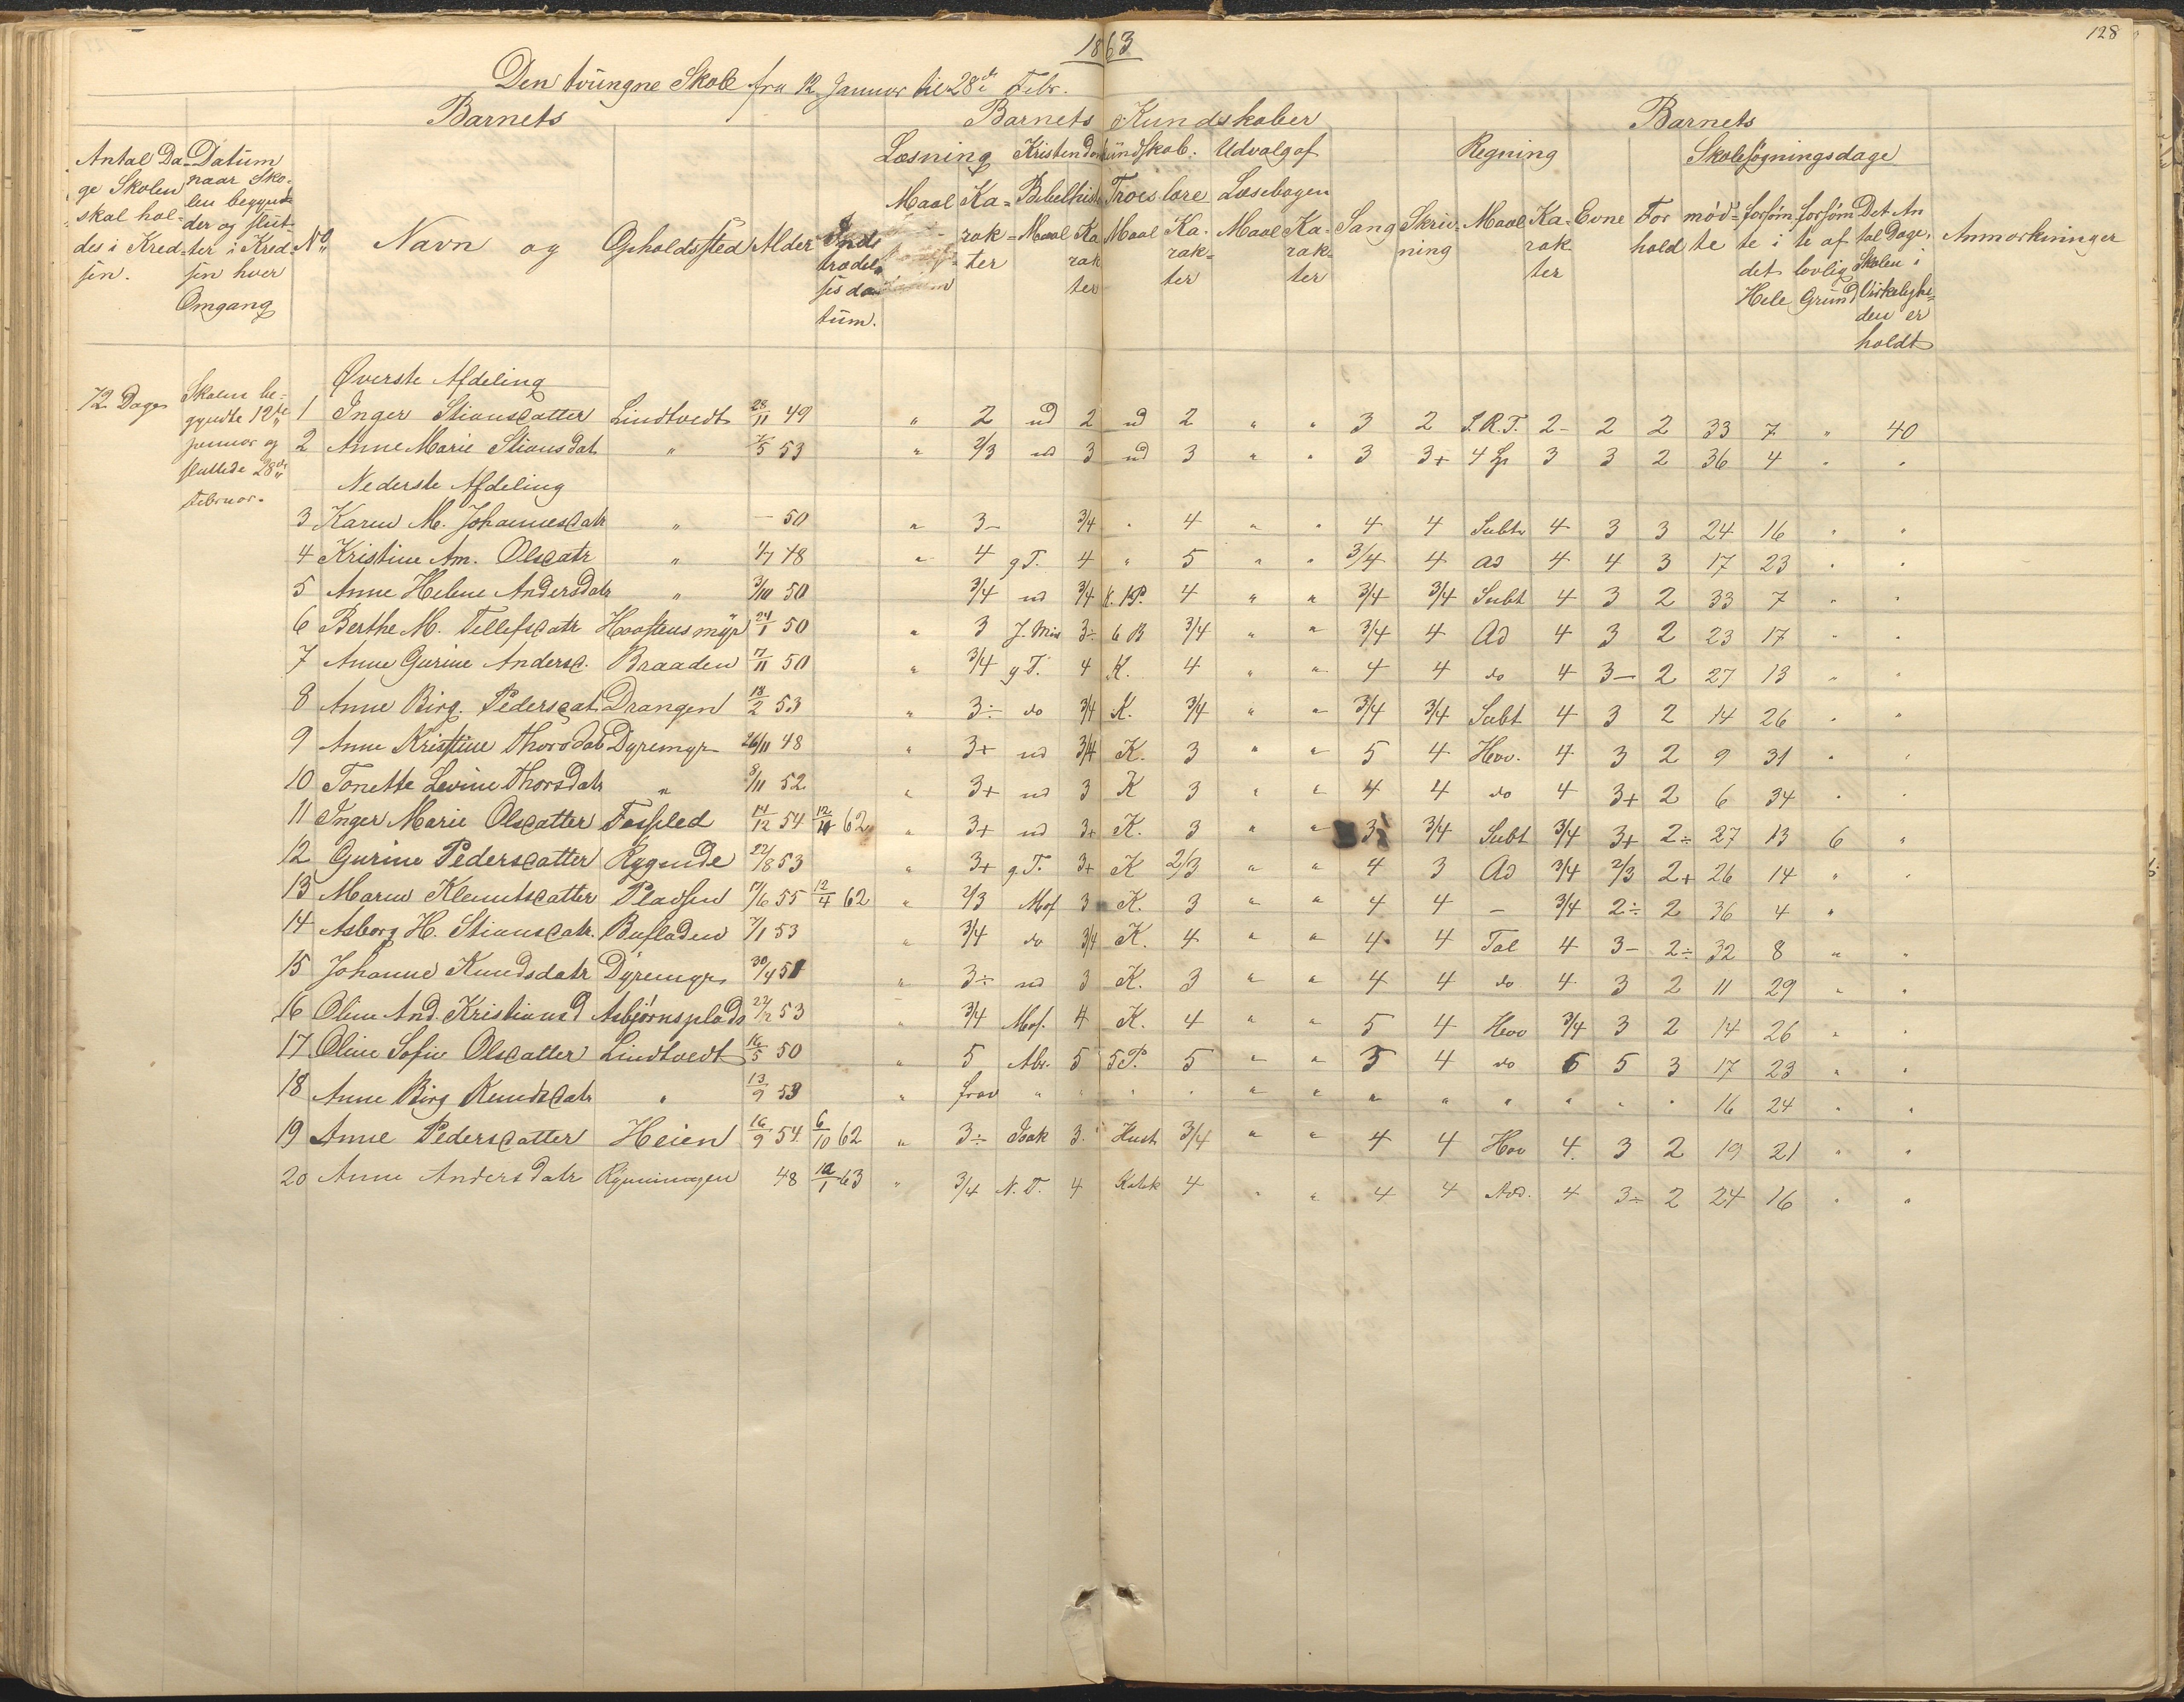 1863
128
Den tvungne Skole fra 12 Januar til 28de Febr.
Barnets Barnets Kundskaber Barnets
Antal Da- Datum Læsning Kristendomskundskab. Udvalg af Regning Skolesøgningsdage
ge Skolen naar Sko-
skal hol- len begynd- Maal Ka- Bibelhist Troeslære Læsebogen
des i Kred- der og slut- No Navn og Opholdssted Alder Ind- rak- Maal Ka Maal Ka- Maal Ka- Sang Skriv- Maal Ka- Evne For mød- forsøm forsøm Det An Anmærkninger
sen. ter i Kred- trædel- ter rak rak- rak- ning rak hold te te i te af tal Dage,
sen hver ses da- ter ter ter ter det lovlig Skolen i
Omgang tum. Hele Grund Virkelighe-
den er
holdt
Øverste Afdeling
72 Dage Skolen be-
gyndte 12te
januar og
sluttede 28de
februar.
1 Inger Stiansdatter Lindtvedt 28/11 49 " 2 ud 2 ud 2 " " 3 2 S.R.T. 2- 2 2 33 7 " 40
2 Anne Marie Stiansdat " 53 " 2/3 ud 3 ud 3 " " 3 3+ 4 Sp 3 3 2 36 4 " "
Nederste Afdeling
3 Karen M. Johannesdatr " — 50 " 3- 3/4 " 4 " " 4 4 Subtr 4 3 3 24 16 " "
4 Kristine Am. Olsdatr " 4/7 48 " 4 g T. 4 " 5 " " 3/4 4 ad 4 4 3 17 23 " "
5 Anne Helene Andersdatr " 3/10 50 3/4 ud 3/4 K. 1P. 4 " " 3/4 3/4 Subt 4 3 2 33 7 " "
6 Berthe M. Tellefsdatr 24/1 50 " 3 J. Min 3÷ 6 B 3/4 " " 3/4 4 Ad 4 3 2 23 17 " "
7 Anne Gurine Andersd. Braaden 17/11 50 " 3/4 g T. 4 K. 4 " " 4 4 do 4 3- 2 27 13 " "
8 Anne Birg. Pedersdat. Drangen 18/2 53 " 3÷ do 3/4 K. 3/4 " " 3/4 3/4 Subt 4 3 2 14 26 " "
9 Anne Kristine Thorsdat Dyremyr 26/11 48 " 3+ ud 3/4 K. 3 " " 5 4 Hov. 4 3 2 9 31 " "
10 Tonette Levine Thorsdatr " 8/11 52 " 3+ ud 3 K 3 " " 4 4 do 4 3+ 2 6 34 " "
11 Inger Marie Olsdatter Fosseled 14/12 54 62 " 3+ ud 3+ K. 3 " " 3 3/4 Subt 3/4 3+ 2÷ 27 13 6 "
12 Gurine Pedersdatter Rygende 22/8 53 " 3+ g T. 3+ K 2/3 " " 4 3 Ad 3/4 2/3 2+ 26 14 " "
13 Maren Klemetsdatter Pladsen 17/6 55 12/4 62 " 2/3 Mos 3 K. 3 " " 4 4 — 3/4 2÷ 2 36 4 "
14 Asborg H. Stiansdatr. Busladen 7/1 53 " 3/4 do 3/4 K. 4 " " 4 4 Tal 4 3- 2÷ 32 8 " "
15 Johanne Knudsdatr Dyremyr 30/4 51 " 3÷ ud 3 K. 3 " " 4 4 do 4 3 2 11 29 " "
16 Oline And. Kristiansd Asbjørnsplads 53 " 3/4 Mos. 4 K. 4 " " 5 4 Hov 3/4 3 2 14 26 " "
17 Oline Sofie Olsdatter Lindtvedt 16/5 50 " 5 Abr. 5 5 P. 5 " " 5 4 do 6 5 3 17 23 " "
18 Anne Birg Knudsdatr " 13/9 53 " frav " " " " " " " " " " " " 16 24 " "
19 Anne Pedersdatter Heien 16/9 54 6/10 62 " 3÷ Isak 3. Hust 3/4 " " 4 4 Hov 4. 3 2 19 21 " "
20 Anne Andersdatr Rynningen 48 12/1 63 " 3/4 N. T. 4 Katek 4 " " 4 4 Add. 4 3÷ 2 24 16 " "